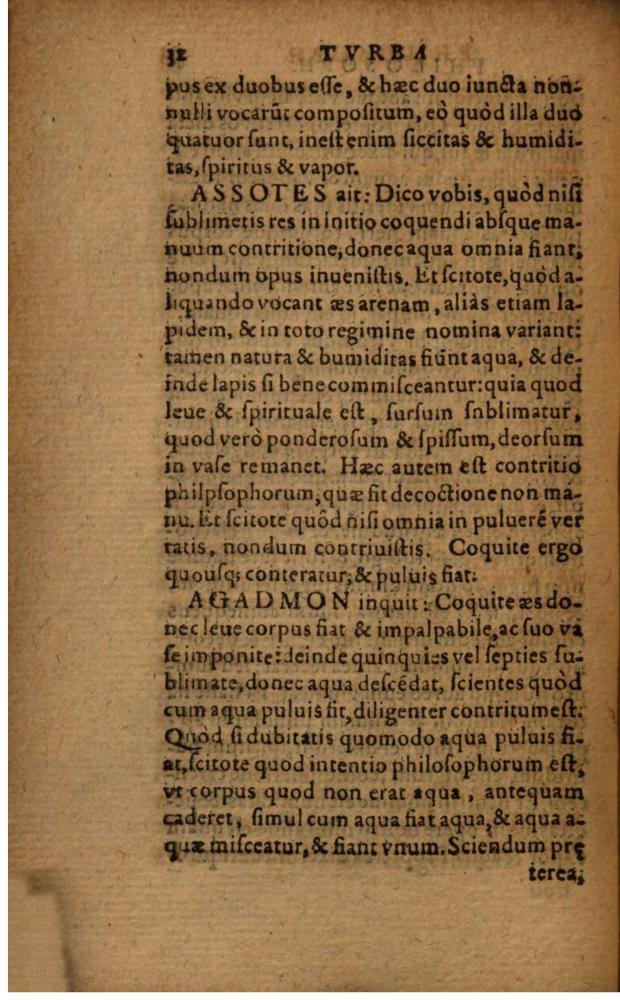 32 TVRBA
pus ex duobus eſſe, & hæc duo iuncta non-
nulli vocarūt compoſitum, eò quòd illa duo
quatuor ſunt, ineſt enim ſiccitas & humidi-
tas, ſpiritus & vapor.
ASSOTES ait: Dico vobis, quòd niſi
ſublimetis res in initio coquendi abſque ma-
nuum contritione, donec aqua omnia fiant,
nondum opus inueniſtis. Et ſcitote, quòd a-
liquando vocant æs arenam, aliàs etiam la-
pidem, & in toto regimine nomina variant:
tamen natura & bumiditas fiūnt aqua, & de-
inde lapis ſi bene commiſceantur: quia quod
leue & ſpirituale eſt, ſurſum ſnblimatur,
quod verò ponderoſum & ſpiſſum, deorſum
in vaſe remanet. Hæc autem eſt contritio
philpſophorum, quæ fit decoctione non ma-
nu. Et ſcitote quôd niſi omnia in puluerē ver
tatis, nondum contriuiſtis. Coquite ergo
quouſq; conteratur, & puluis fiat.
AGADMON inquit: Coquite æs do-
nec leue corpus fiat & impalpabile, ac ſuo va
ſe imponite: deinde quinquies vel ſepties ſu-
blimate, donec aqua deſcēdat, ſcientes quòd
cum aqua puluis fit, diligenter contritum eſt.
Quòd ſi dubitatis quomodo aqua puluis fi-
at, ſcitote quod intentio philoſophorum eſt,
vt corpus quod non erat aqua, antequam
caderet, ſimul cum aqua fiat aqua, & aqua a-
quæ miſceatur, & fiant vnum. Sciendum prę
terea,